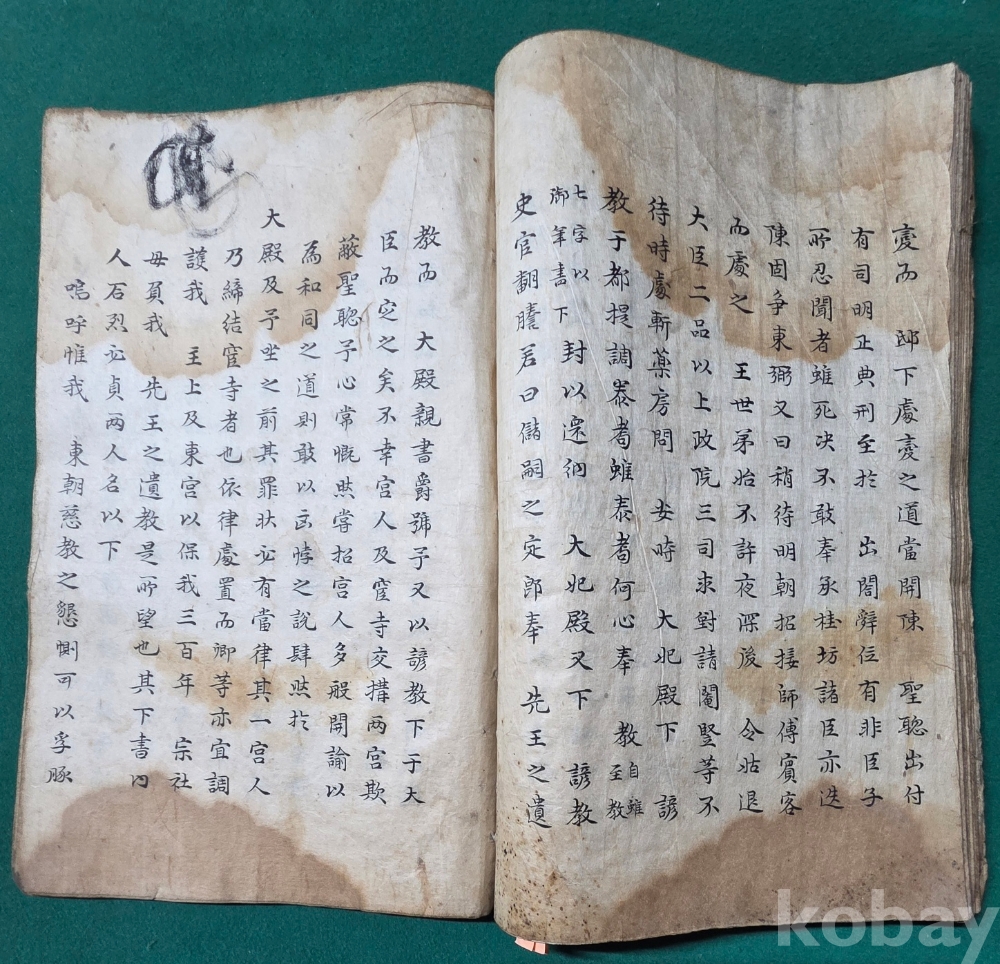 憂而 邸下處憂之道當開陳 聖聰出付
有司明正典刑至於 出閤辭位有非臣子
所忍聞者雖死决不敢奉承桂坊諸臣亦迭
陳固爭東弼又曰稍待明朝招接師傅賓客
而處之 王世弟始不許夜深後 令姑退
大臣二品以上政院三司求對請閹竪等不
待時處斬藥房問 安時 大妃殿下 諺
教于都提調泰耇雖泰耇何心奉 教自雖至教
七字以御筆書下 封以還納 大妃殿又下 諺教
史官翻謄若曰儲嗣之定郎奉 先王之遺
教而 大殿親書爵號予又以諺教下于大
臣而定之矣不幸宮人及宦寺交搆兩宮欺
蔽聖聰予心常慨然嘗招宮人多般開諭以
爲和同之道則敢以凶悖之說肆然於
大殿及予坐之前其罪狀必有當律其一宮人
乃締結宦寺者也依律處置而卿等亦宜調
護我 主上及東宮以保我三百年 宗社
毋負我 先王之遺教是所望也其下書內
人石烈必貞兩人名以下
嗚呼惟我 東朝慈教之懇惻可以孚豚
kobay